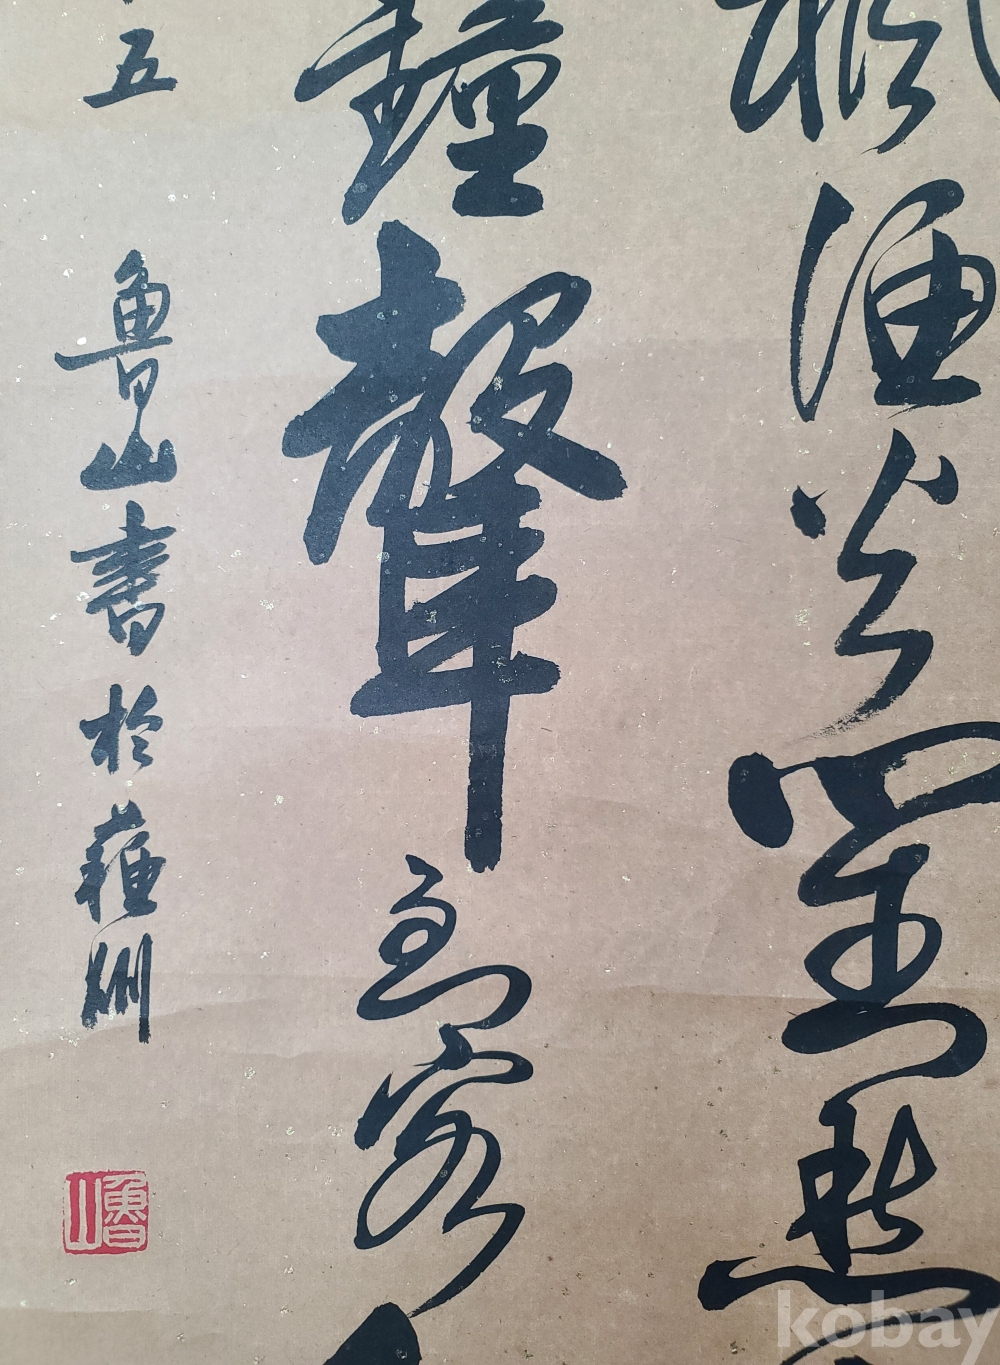 楓漁火對愁
鐘聲到客
五 魯山書於蘇州
魯山
kobay